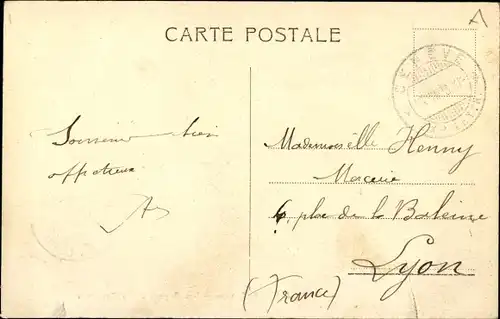 CARTE POSTALE
GENÈVE
Souvenir bien
affectueux
Mademoiselle Henny
Mercerie
6, place de la Baleine
Lyon
(France)